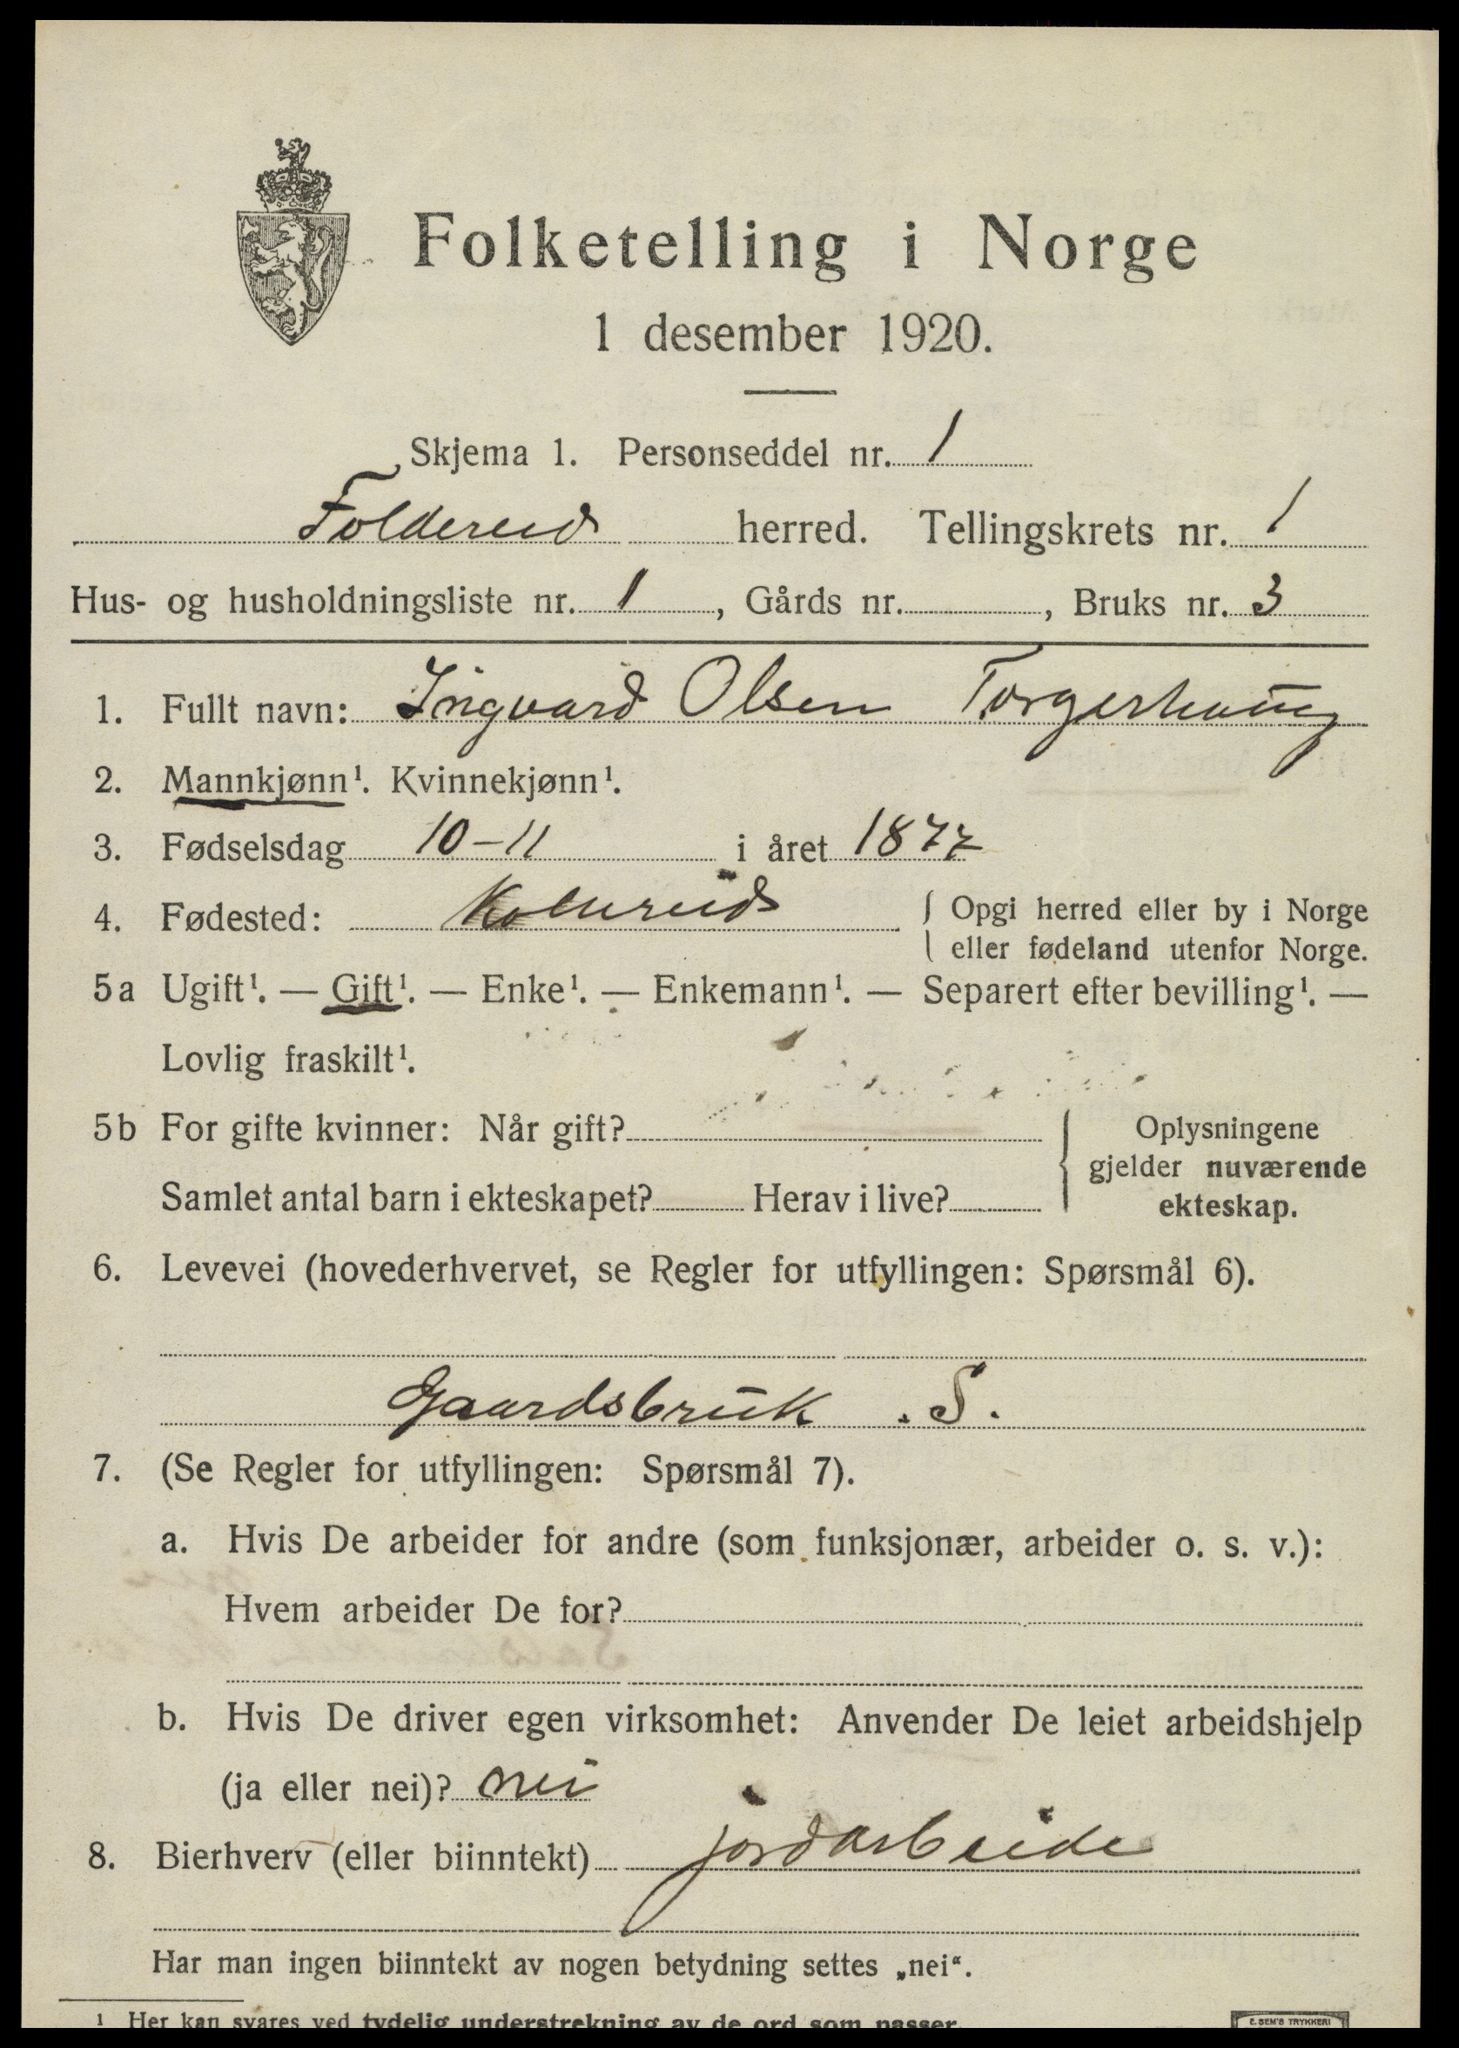 Folketelling i Norge
1 desember 1920.
Skjema 1. Personseddel nr. 1
Foldereid herred. Tellingskrets nr. 1
Hus- og husholdningsliste nr. 1, Gårds nr. , Bruks nr. 3
1. Fullt navn: Ingvard Olsen Torgerhaug
2. Mannkjønn¹. Kvinnekjønn¹.
3. Fødselsdag 10-11 i året 1877
4. Fødested: Kolvereid { Opgi herred eller by i Norge
eller fødeland utenfor Norge.
5a Ugift¹. — Gift¹. — Enke¹. — Enkemann¹. — Separert efter bevilling¹. —
Lovlig fraskilt¹.
5b For gifte kvinner: Når gift? { Oplysningene
gjelder nuværende
Samlet antal barn i ekteskapet? Herav i live? ekteskap.
6. Levevei (hovederhvervet, se Regler for utfyllingen: Spørsmål 6).
Gaardsbruk . S.
7. (Se Regler for utfyllingen: Spørsmål 7).
a. Hvis De arbeider for andre (som funksjonær, arbeider o. s. v.):
Hvem arbeider De for?
b. Hvis De driver egen virksomhet: Anvender De leiet arbeidshjelp
(ja eller nei)? nei
8. Bierhverv (eller biinntekt) jordarbeide
Har man ingen biinntekt av nogen betydning settes „nei“.
¹ Her kan svares ved tydelig understrekning av de ord som passer.
E. SEM'S TRYKKERI